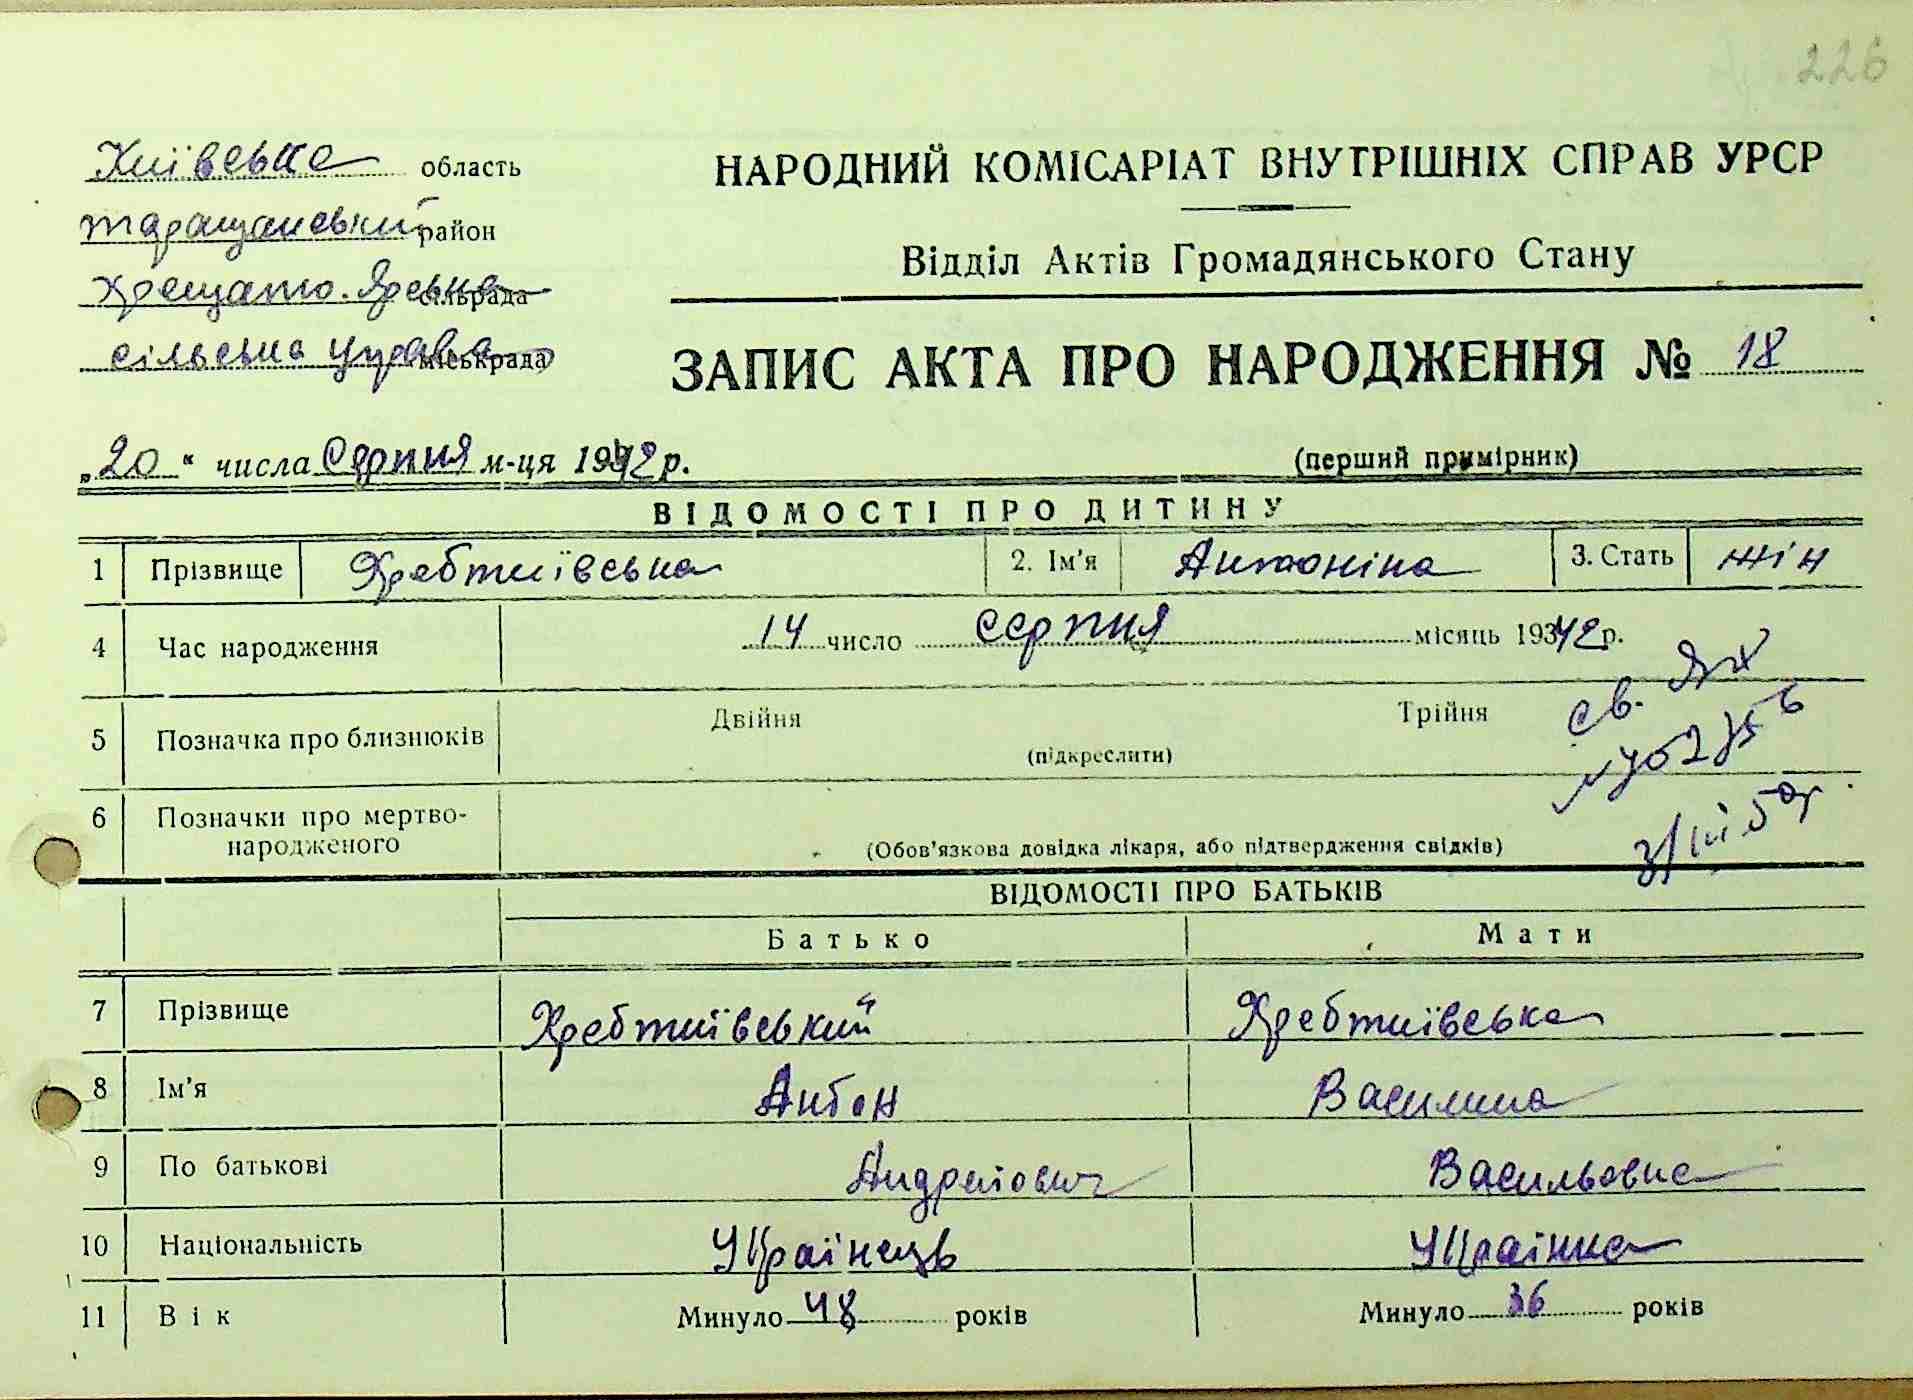 226
Київська область
Таращанський район
Хрещато-Ярська сільрада
сільська управа міськрада
НАРОДНИЙ КОМІСАРІАТ ВНУТРІШНІХ СПРАВ УРСР
Відділ Актів Громадянського Стану
ЗАПИС АКТА ПРО НАРОДЖЕННЯ № 18
„20“ числа Серпня м-ця 1942 р.
(перший примірник)
ВІДОМОСТІ ПРО ДИТИНУ
1 Прізвище Хребтиївська 2. Ім'я Антоніна 3. Стать жін
4 Час народження 14 число серпня місяць 1942 р.
5 Позначка про близнюків Двійня Трійня
(підкреслити)
св.
6 Позначки про мертво-
народженого
(Обов'язкова довідка лікаря, або підтвердження свідків)
ВІДОМОСТІ ПРО БАТЬКІВ
Батько Мати
7 Прізвище Хребтиївський Хребтиївська
8 Ім'я Антон Василина
9 По батькові Андреіович Васильовна
10 Національність Українець Українка
11 Вік Минуло 48 років Минуло 36 років